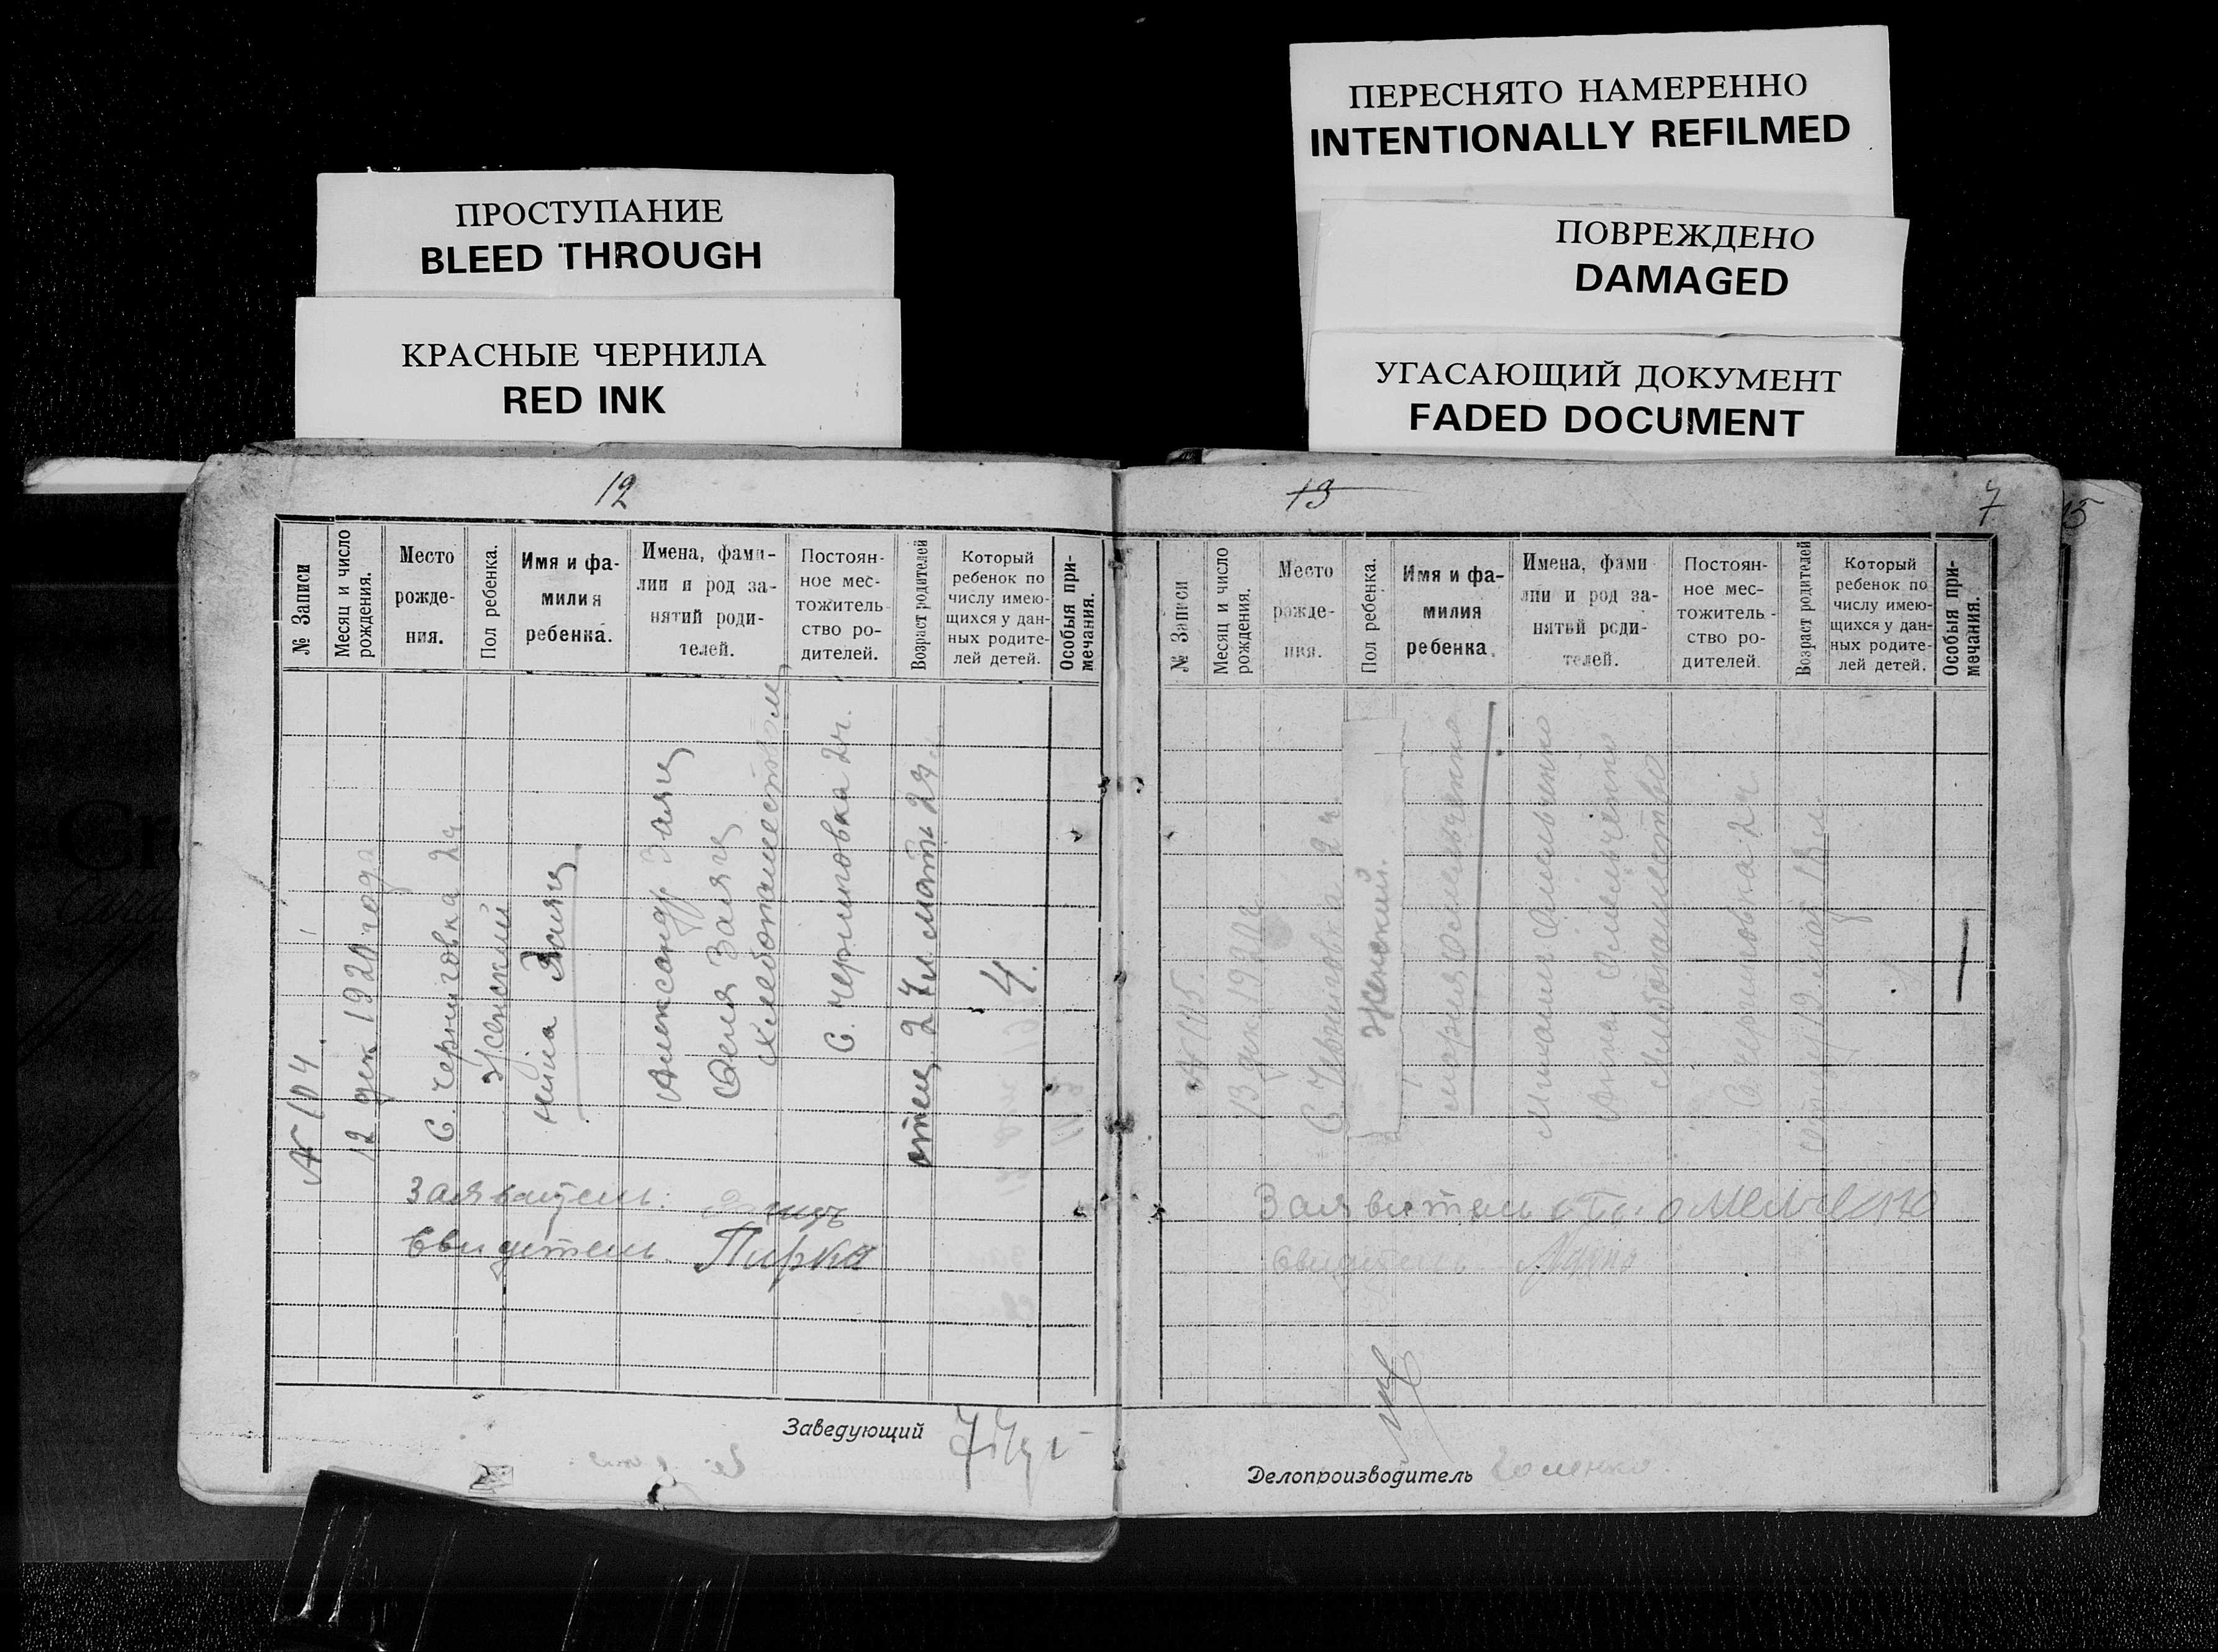 ПЕРЕСНЯТО НАМЕРЕННО
INTENTIONALLY REFILMED
ПРОСТУПАНИЕ
BLEED THROUGH
ПОВРЕЖДЕНО
DAMAGED
КРАСНЫЕ ЧЕРНИЛА
RED INK
УГАСАЮЩИЙ ДОКУМЕНТ
FADED DOCUMENT
12
№ Записи
Месяц и число
рождения.
Место
рожде-
ния.
Пол ребенка.
Имя и фа-
милия
ребенка.
Имена, фами-
лии и род за-
нятий роди-
телей.
Постоян-
ное мес-
тожитель-
ство ро-
дителей.
Возраст родителей
Который
ребенок по
числу имею-
щихся у дан-
ных родите-
лей детей.
Особыя при-
мечания.
№ 104.
12 дек 1920 года
С. Черниговка 2ч
Женский
Нина Заяц
Александр Заяц
Заяц
Хлебопашеством
С. Черниговка 2ч.
отец 27л мать 27
4.
Заявитель:
Свидетель Пирка
Заведующий
13
7
15
№ Записи
Месяц и число
рождения.
Место
рожде-
ния.
Пол ребенка.
Имя и фа-
милия
ребенка.
Имена, фами
лии и род за-
нятий роди-
телей.
Постоян-
ное мес-
тожитель-
ство ро-
дителей.
Возраст родителей
Который
ребенок по
числу имею-
щихся у дан-
ных родите-
лей детей.
Особыя при-
мечания.
№ 105.
13 дек 1920г
С. Черниговка 2ч
Женский.
Мария Омельченко
Михаил Омельченко
Анна Омельченко
Хлебопашество
С. Черниговка 2ч
1
Заявитель
Свидетель
Делопроизводитель